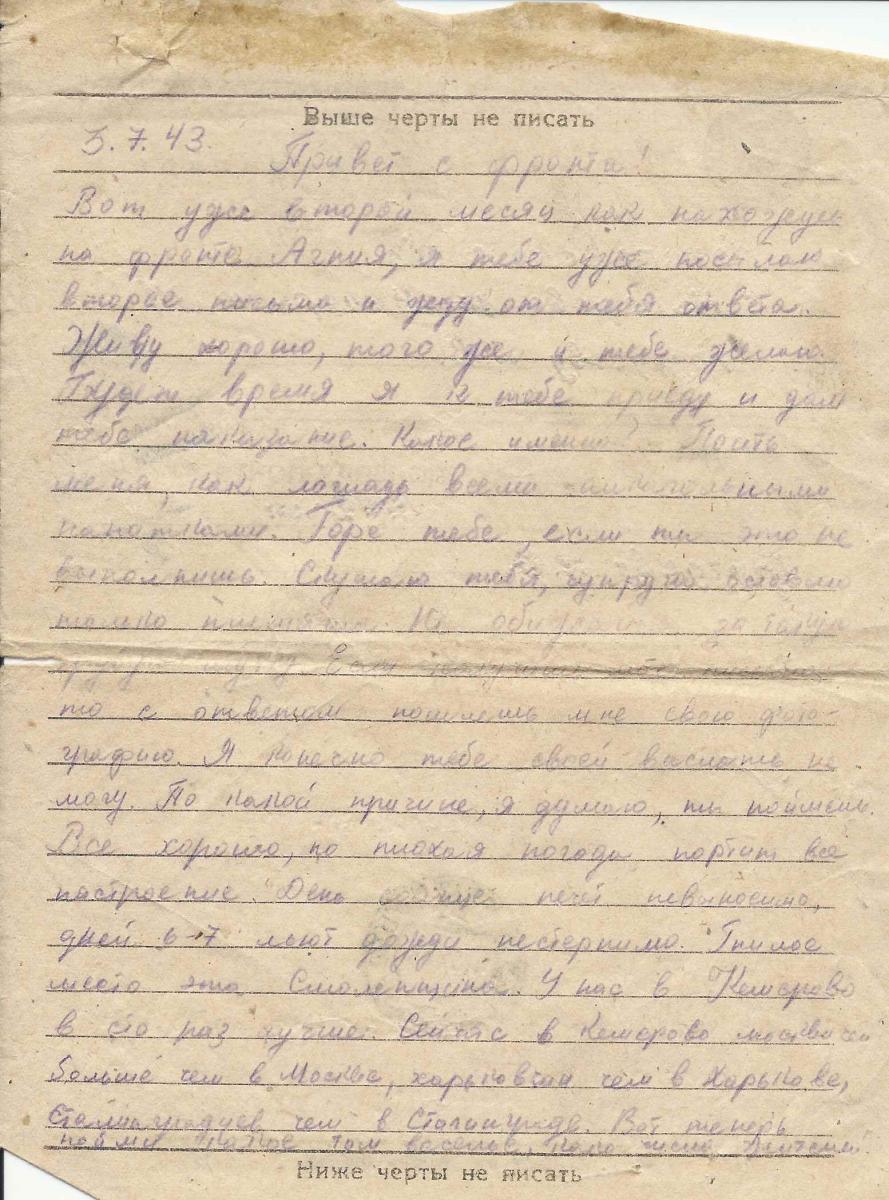 Выше черты не писать
3.7.43.
Привет с фронта!
Вот уже второй месяц как нахожусь
на фронте. Агния, я тебе уже посылаю
второе письмо и жду от тебя ответа.
Живу хорошо, того же и тебе желаю.
Будет время я к тебе приеду и дам
тебе наказание. Какое именно? Поить
меня, как лошадь всеми
напитками. Горе тебе, если ты это не
выполнишь. тебя,
только за такую
шутку. Если получишь мое письмо,
то с ответом пошлешь мне свою фото-
графию. Я конечно тебе своей выслать не
могу. По какой причине, я думаю, ты поймешь.
Все хорошо, но плохая погода портит все
настроение. День солнце печет невыносимо,
дней 6-7 льют дожди нестерпимо. Гнилое
место эта Смоленщина. У нас в Кемерово
в сто раз лучше. Сейчас в Кемерово москвичей
больше чем в Москве, харьковчан чем в Харькове,
Сталинградцев чем в Сталинграде. Вот теперь
пойми какое там веселье,
Ниже черты не писать